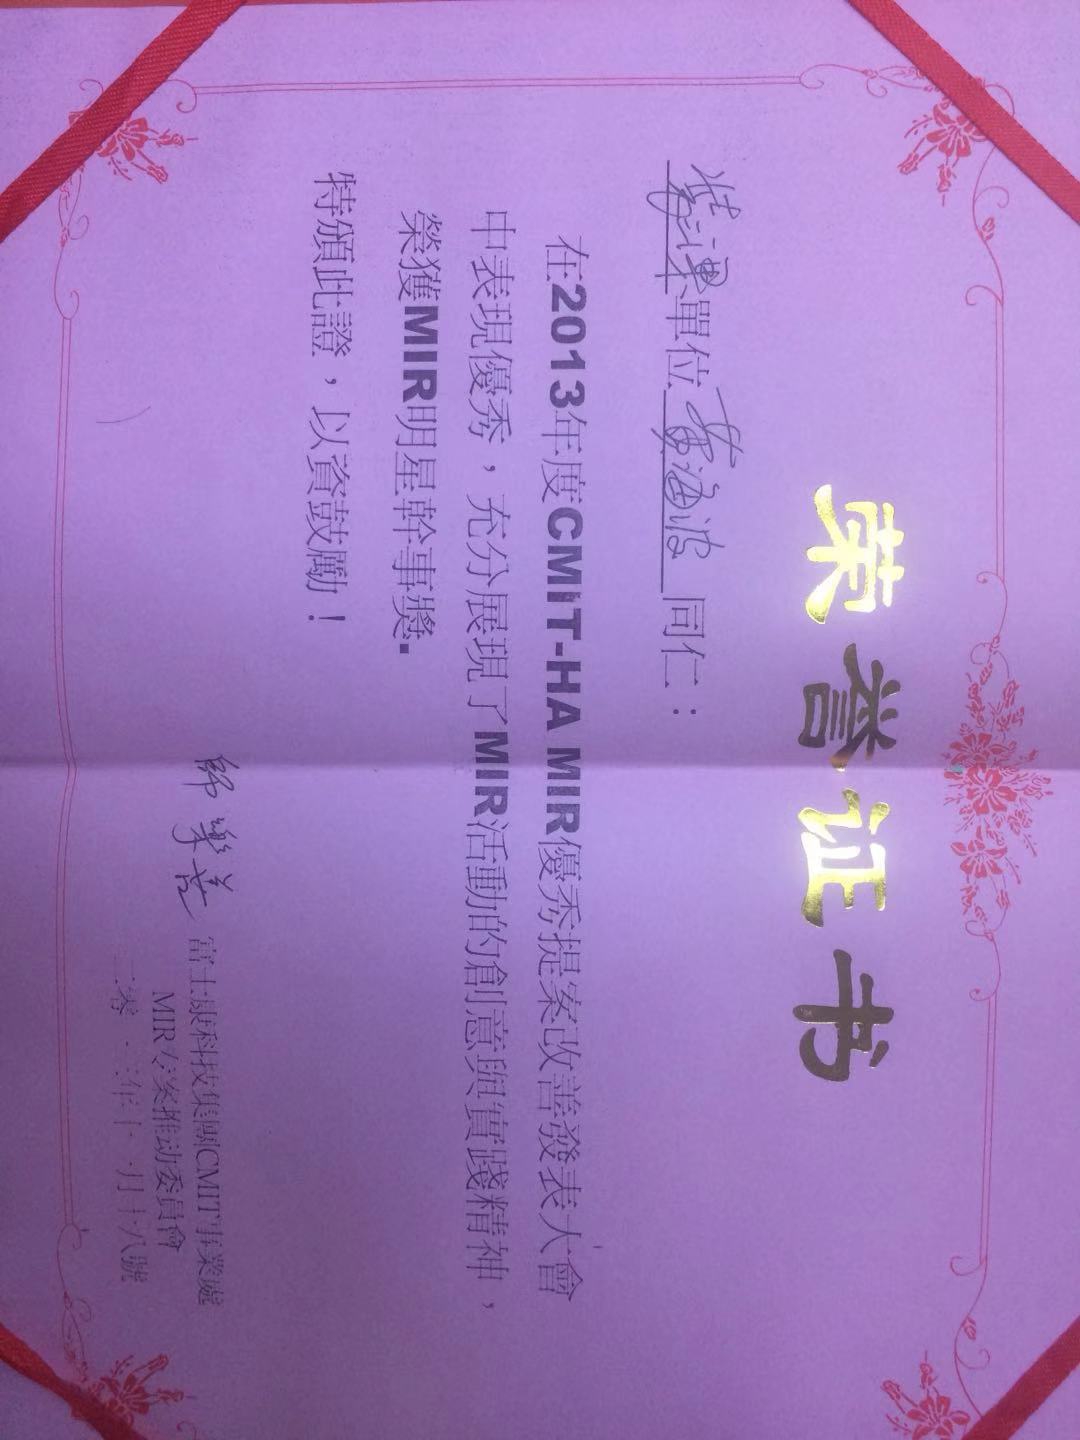 荣誉证书
製澤單位 黃海波 同仁：
在2013年度CMIT-HA MIR優秀提案改善發表大會
中表現優秀，充分展現了MIR活動的創意與實踐精神，
榮獲MIR明星幹事獎.
特頒此證，以資鼓勵！
富士康科技集團CMIT事業處
MIR专案推动委員會
月十八號